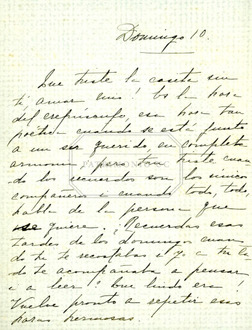 Domingo 10.
Que triste la casita sin
ti, amor mio! Es la hora
del crepúsculo, esa hora tan
poética cuando se está junto
a un ser querido, en completa
armonia, pero tan triste cuan-
do los recuerdos son los unicos
compañeros i cuando todo, todo
habla de la persona que
se quiere. ¿Recuerdas esas
tardes de los domingos cuan-
do te recostabas i yo a tu la-
do te acompañaba a pensar
i a leer? Que lindo era!
Vuelve pronto a repetir esas
horas hermosas.